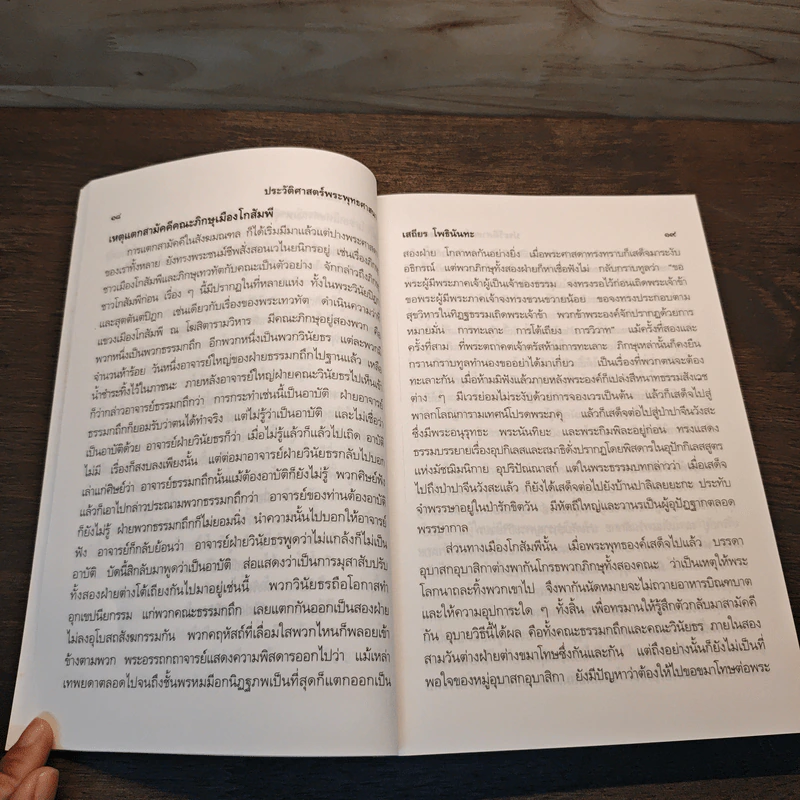 ๑๘
ประวัติศาสตร์พระพุทธศาสนา
เหตุแตกสามัคคีคณะภิกษุเมืองโกสัมพี
การแตกสามัคคีในสังฆมณฑล ก็ได้เริ่มมีมาแล้วแต่ปางพระศาสดา
ของเราทั้งหลาย ยังทรงพระชนม์ชีพสั่งสอนเวไนยนิกรอยู่ เช่นเรื่องภิกษุ
ชาวเมืองโกสัมพีและภิกษุเทวทัตกับคณะเป็นตัวอย่าง จักกล่าวถึงภิกษุ
ชาวโกสัมพีก่อน เรื่อง ๆ นี้มีปรากฏในที่หลายแห่ง ทั้งในพระวินัยปิฎก
และสุตตันตปิฎก เช่นเดียวกับเรื่องของพระเทวทัต ดำเนินความว่า
แขวงเมืองโกสัมพี ณ โฆสิตารามวิหาร มีคณะภิกษุอยู่สองพวก คือ
พวกหนึ่งเป็นพวกธรรมกถึก อีกพวกหนึ่งเป็นพวกวินัยธร แต่ละพวกมี
จำนวนห้าร้อย วันหนึ่งอาจารย์ใหญ่ของฝ่ายธรรมกถึกไปฐานแล้ว เหลือ
น้ำชำระทิ้งไว้ในภาชนะ ภายหลังอาจารย์ใหญ่ฝ่ายคณะวินัยธรไปเห็นเข้า
ก็ว่ากล่าวอาจารย์ธรรมกถึกว่า การกระทำเช่นนี้เป็นอาบัติ ฝ่ายอาจารย์
ธรรมกถึกก็ยอมรับว่าตนได้ทำจริง แต่ไม่รู้ว่าเป็นอาบัติ และไม่เชื่อว่า
เป็นอาบัติด้วย อาจารย์ฝ่ายวินัยธรก็ว่า เมื่อไม่รู้แล้วก็แล้วไปเถิด อาบัติ
ไม่มี เรื่องก็สงบลงเพียงนั้น แต่ต่อมาอาจารย์ฝ่ายวินัยธรกลับไปบอก
เล่าแก่ศิษย์ว่า อาจารย์ธรรมกถึกนั้นแม้ต้องอาบัติก็ยังไม่รู้ พวกศิษย์ฟัง
แล้วก็เอาไปกล่าวประณามพวกธรรมกถึกว่า อาจารย์ของท่านต้องอาบัติ
ก็ยังไม่รู้ ฝ่ายพวกธรรมกถึกก็ไม่ยอมนิ่ง นำความนั้นไปบอกให้อาจารย์
ฟัง อาจารย์ก็กลับย้อนว่า อาจารย์ฝ่ายวินัยธรพูดว่าไม่แกล้งก็ไม่เป็น
อาบัติ บัดนี้สิกลับมาพูดว่าเป็นอาบัติ ส่อแสดงว่าเป็นการมุสาสับปรับ
ทั้งสองฝ่ายต่างโต้เถียงกันไปมาอยู่เช่นนี้ พวกวินัยธรถือโอกาสทำ
อุกเขปนียกรรม แก่พวกคณะธรรมกถึก เลยแตกกันออกเป็นสองฝ่าย
ไม่ลงอุโบสถสังฆกรรมกัน พวกคฤหัสถ์ที่เลื่อมใสพวกไหนก็พลอยเข้า
ข้างตามพวก พระอรรถกถาจารย์แสดงความพิสดารออกไปว่า แม้เหล่า
เทพยดาตลอดไปจนถึงชั้นพรหมมีอกนิฏฐภพเป็นที่สุดก็แตกออกเป็น
เสถียร โพธินันทะ
๑๙
สองฝ่าย โกลาหลกันอย่างยิ่ง เมื่อพระศาสดาทรงทราบก็เสด็จมาระงับ
อธิกรณ์ แต่พวกภิกษุทั้งสองฝ่ายก็หาเชื่อฟังไม่ กลับกราบทูลว่า "ขอ
พระผู้มีพระภาคเจ้าผู้เป็นเจ้าของธรรม จงทรงรอไว้ก่อนเถิดพระเจ้าข้า
ขอพระผู้มีพระภาคเจ้าจงทรงขวนขวายน้อย ขอจงทรงประกอบตาม
สุขวิหารในทิฏฐธรรมเถิดพระเจ้าข้า พวกข้าพระองค์จักปรากฏด้วยการ
หมายมั่น การทะเลาะ การโต้เถียง การวิวาท" แม้ครั้งที่สองและ
ครั้งที่สาม ที่พระตถาคตเจ้าตรัสห้ามการทะเลาะ ภิกษุเหล่านั้นก็คงยืน
กรานกราบทูลทำนองขออย่าได้มาเกี่ยว เป็นเรื่องที่พวกตนจะต้อง
ทะเลาะกัน เมื่อห้ามมิฟังแล้วภายหลังพระองค์ก็เปล่งสีหนาทธรรมสังเวช
ต่าง ๆ มีเวรย่อมไม่ระงับด้วยการจองเวรเป็นต้น แล้วก็เสด็จไปสู่
พาลกโลณการามเทศน์โปรดพระภคุ แล้วก็เสด็จต่อไปสู่ปาปาจีนวังสะ
ซึ่งมีพระอนุรุทธะ พระนันทิยะ และพระกิมพิละอยู่ก่อน ทรงแสดง
ธรรมบรรยายเรื่องอุปกิเลสและสมาธิดังปรากฏโดยพิสดารในอุปักกิเลสสูตร
แห่งมัชฌิมนิกาย อุปริปัณณาสก์ แต่ในพระธรรมบทกล่าวว่า เมื่อเสด็จ
ไปถึงปาปาจีนวังสะแล้ว ก็ยังได้เสด็จต่อไปยังบ้านปาลิเลยยะกะ ประทับ
จำพรรษาอยู่ในป่ารักขิตวัน มีหัตถีใหญ่และวานรเป็นผู้อุปัฏฐากตลอด
พรรษากาล
ส่วนทางเมืองโกสัมพีนั้น เมื่อพระพุทธองค์เสด็จไปแล้ว บรรดา
อุบาสกอุบาสิกาต่างพากันโกรธพวกภิกษุทั้งสองคณะ ว่าเป็นเหตุให้พระ
โลกนาถละทิ้งพวกเขาไป จึงพากันนัดหมายจะไม่ถวายอาหารบิณฑบาต
และให้ความอุปการะใด ๆ ทั้งสิ้น เพื่อทรมานให้รู้สึกตัวกลับมาสามัคคี
กัน อุบายวิธีนี้ได้ผล คือทั้งคณะธรรมกถึกและคณะวินัยธร ภายในสอง
สามวันต่างฝ่ายต่างขมาโทษซึ่งกันและกัน แต่ถึงอย่างนั้นก็ยังไม่เป็นที่
พอใจของหมู่อุบาสกอุบาสิกา ยังมีปัญหาว่าต้องให้ไปขอขมาโทษต่อพระ